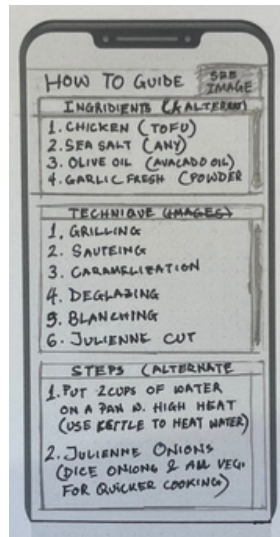 HOW TO GUIDE
SEE
IMAGE
INGRIDIENTS (& ALTERNAT)
1. CHICKEN (TOFU)
2. SEA SALT (ANY)
3. OLIVE OIL (AVACADO OIL)
4. GARLIC FRESH (POWDER
TECHNIQUE (IMAGES)
1. GRILLING
2. SAUTEING
3. CARAMELIZATION
4. DEGLAZING
5. BLANCHING
6. JULIENNE CUT
STEPS (ALTERNATE
1. PUT 2 CUPS OF WATER
ON A PAN W. HIGH HEAT
(USE KETTLE TO HEAT WATER)
2. JULIENNE ONIONS
(DICE ONIONS & ALL VEGI
FOR QUICKER COOKING)